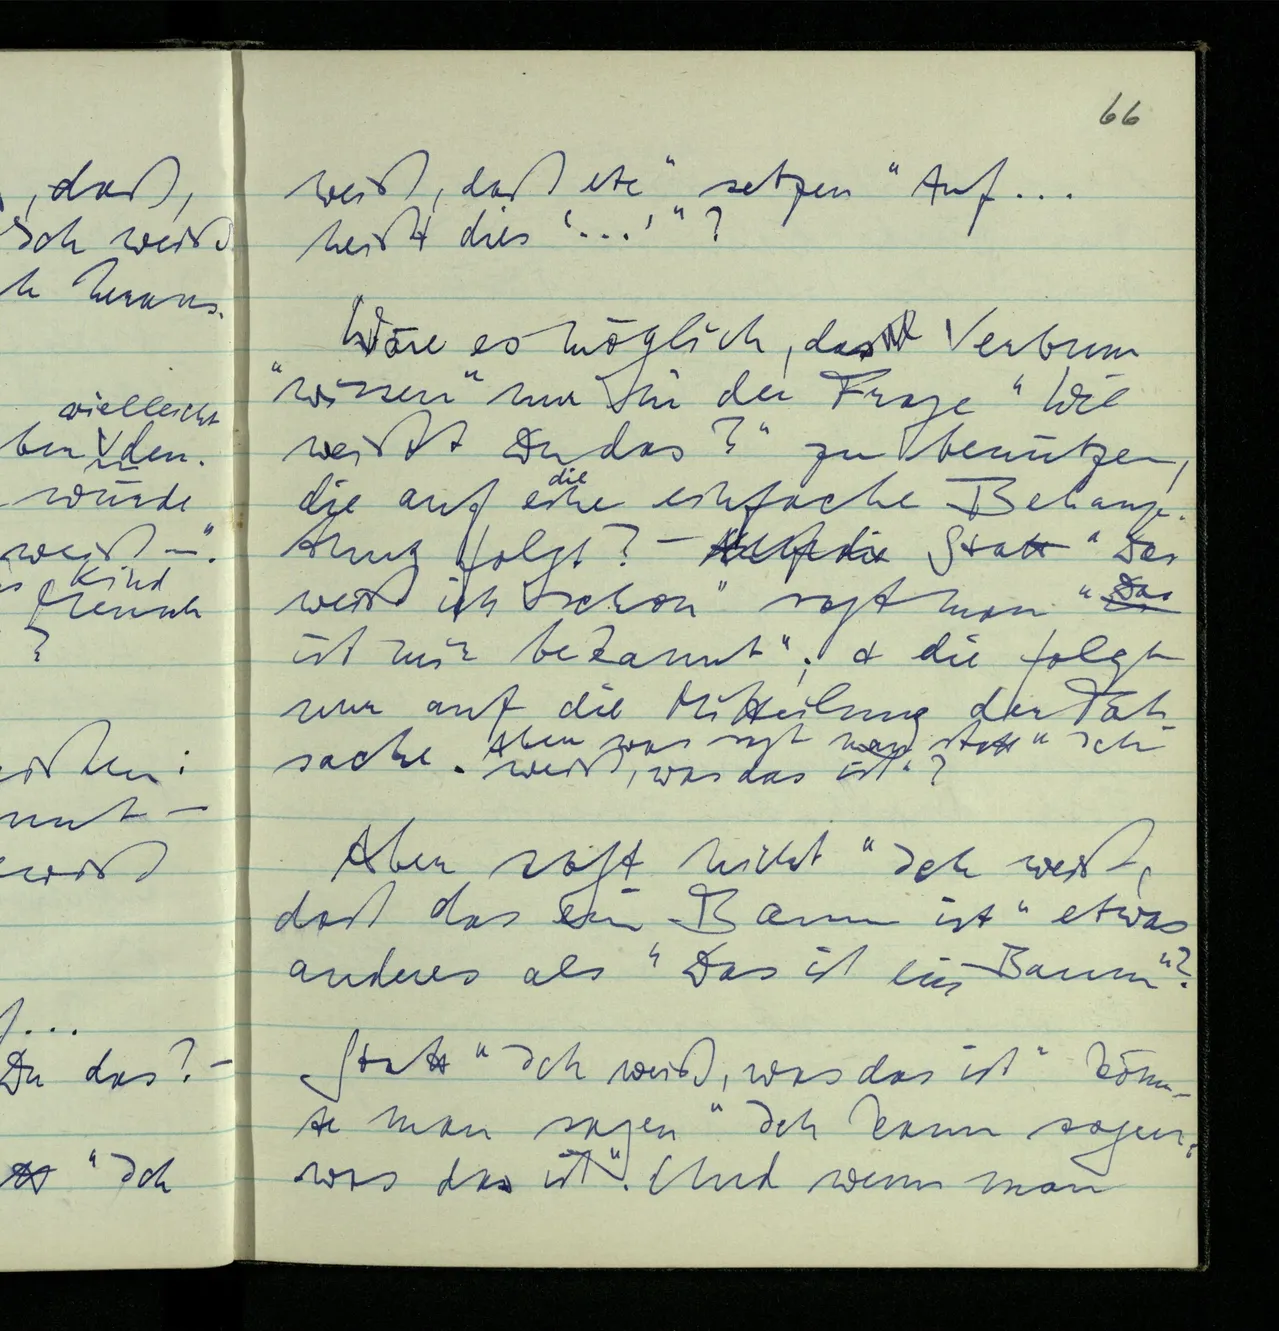 , daß,
Ich weiß
h heraus.
vielleicht
den.
würde
weiß —".
Kind
Mensch
?
wißt
...
Du das? –
"Ich
66
weiß, daß etc" setzen "Auf...
heißt dies '...'"?
Wäre es möglich, das Verbum
"wissen" nur in der Frage "Wie
weißt Du das?" zu benützen,
die
die auf eine einfache Behaup-
tung folgt? – Statt "Das
weiß ich schon" sagt man "Das
ist mir bekannt"; & die folgt
nur auf die Mitteilung der Tat-
sache. Aber was sagt man statt "Ich
weiß, was das ist"?
Aber sagt nicht "Ich weiß,
daß das ein Baum ist" etwas
anderes als "Das ist ein Baum"?
Statt "Ich weiß, was das ist" könn-
te man sagen "Ich kann sagen,
was das ist". Und wenn man